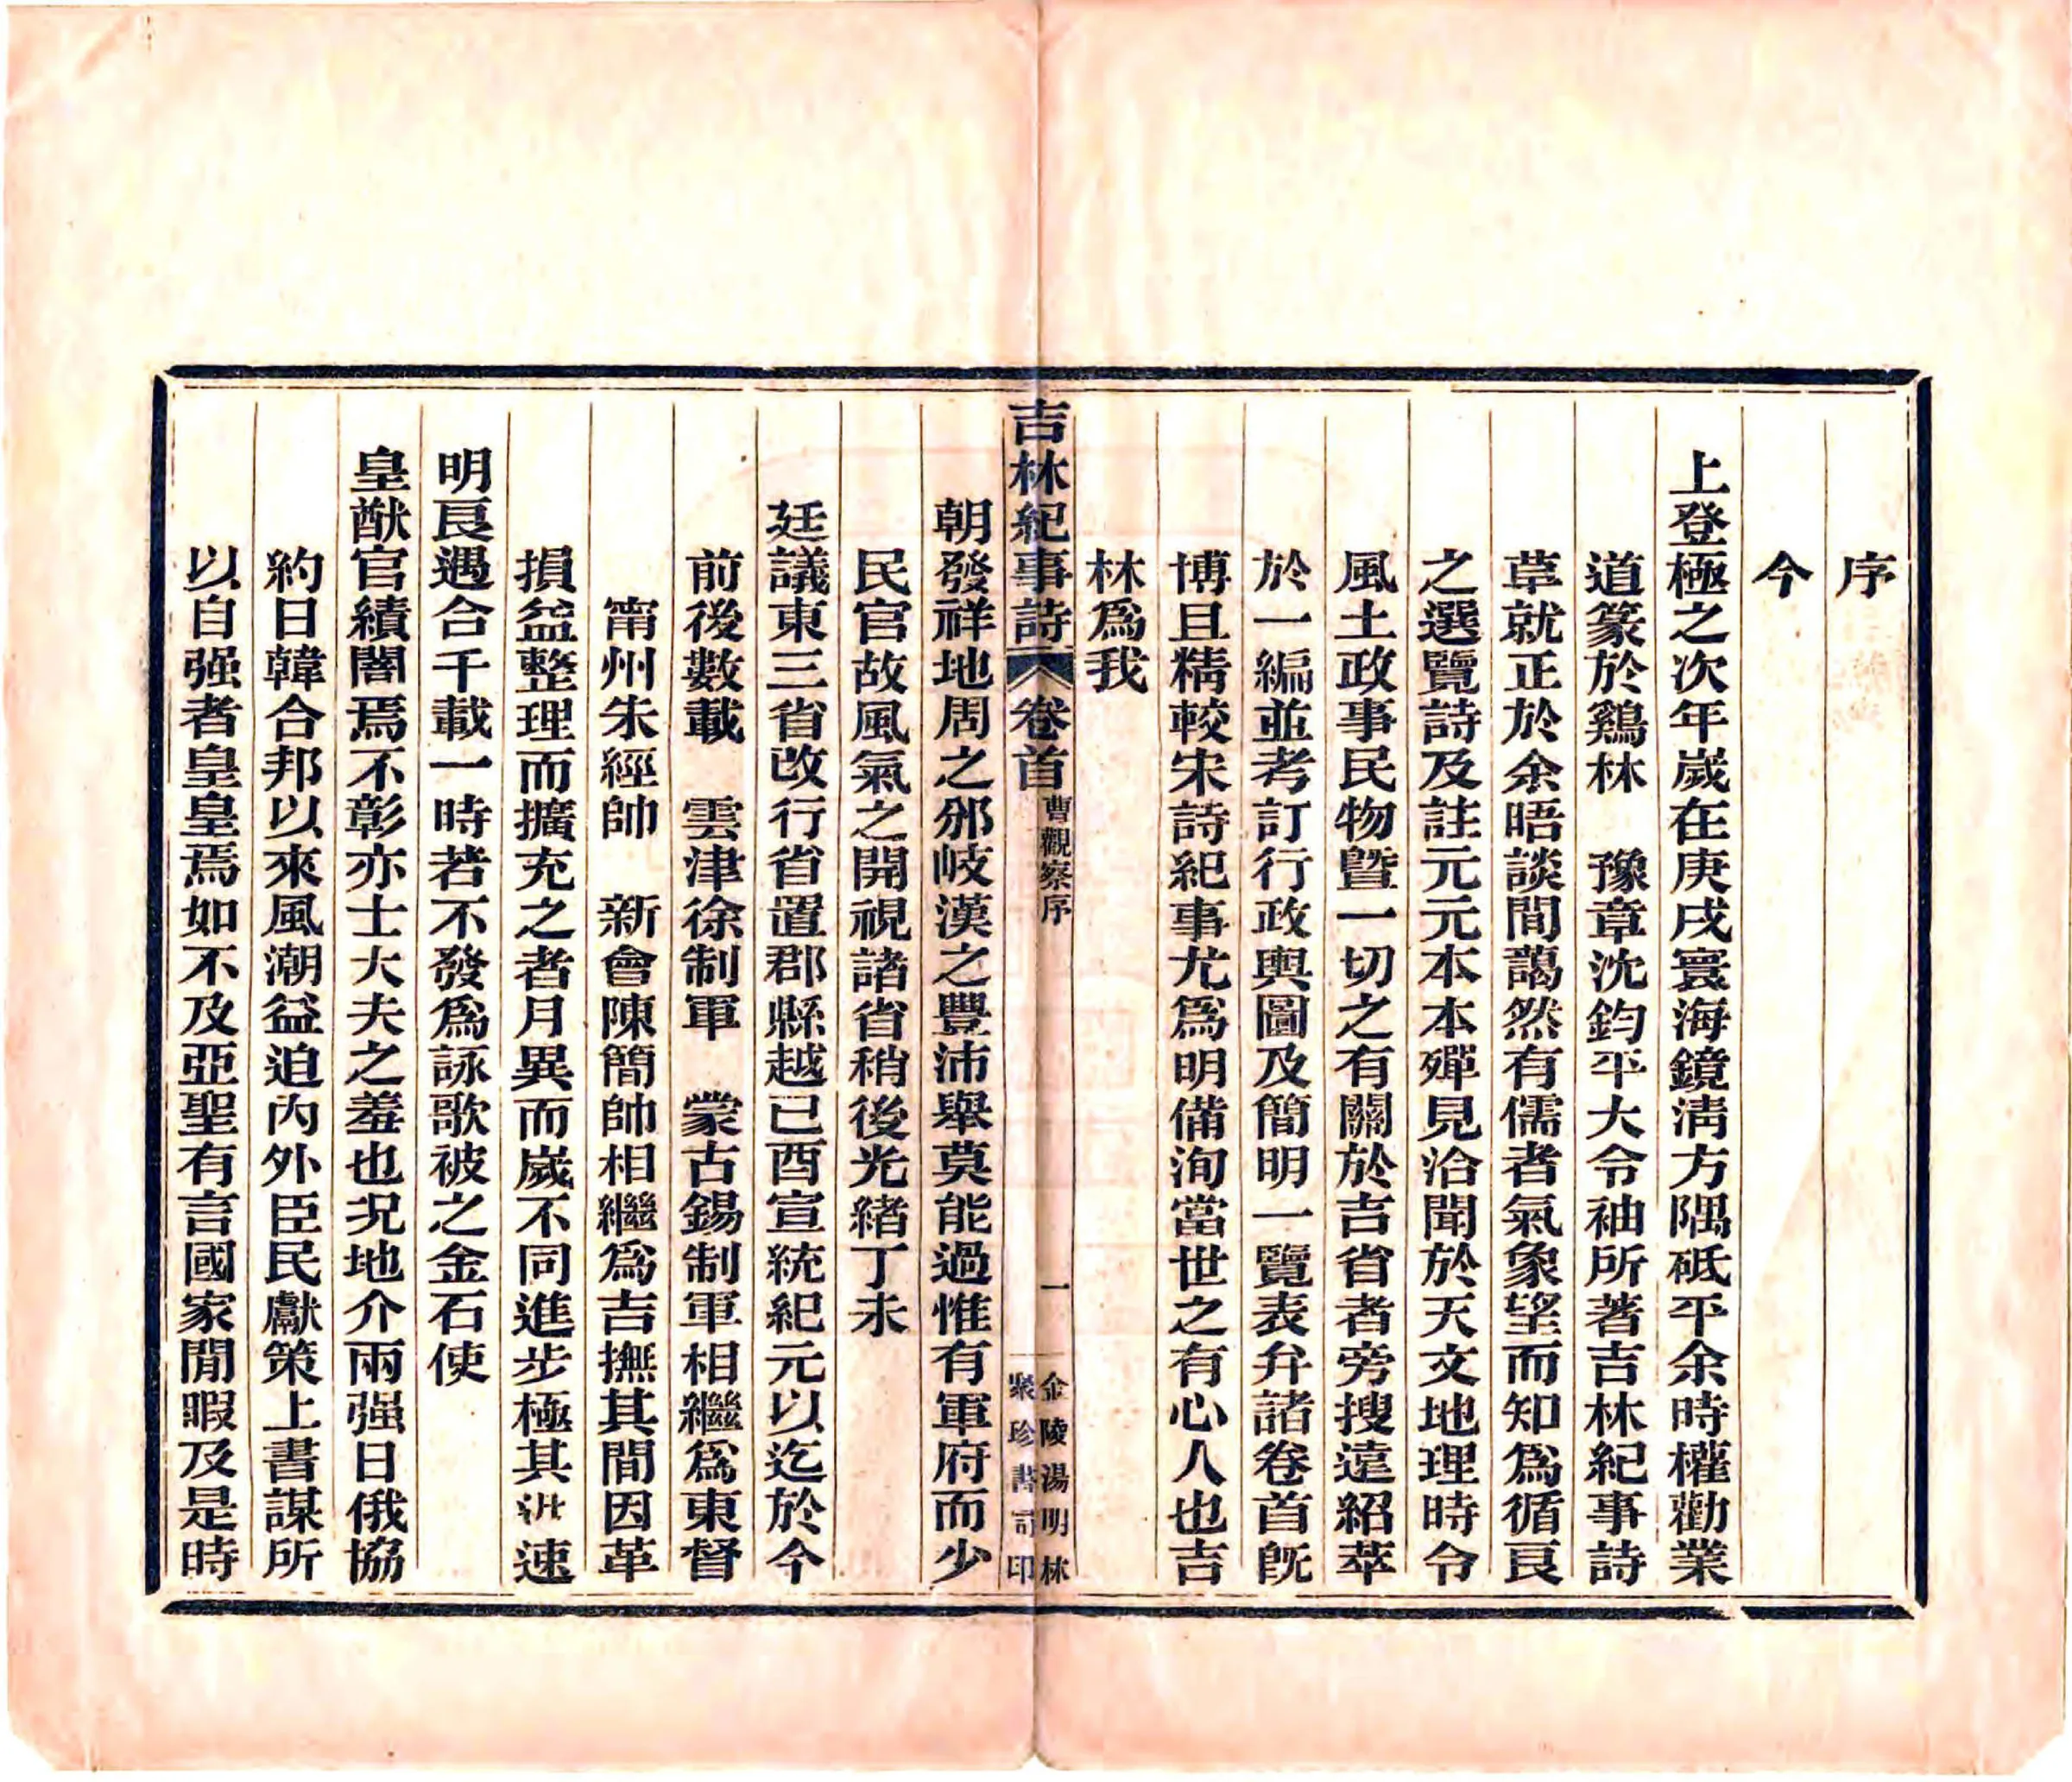 序
今
上登極之次年歲在庚戌寰海鏡清方隅砥平余時權勸業
道篆於鷄林　豫章沈鈞平大令袖所著吉林紀事詩
草就正於余晤談間藹然有儒者氣象望而知爲循良
之選覽詩及註元元本本殫見洽聞於天文地理時令
風土政事民物曁一切之有關於吉省者旁搜遠紹萃
於一編並考訂行政輿圖及簡明一覽表弁諸卷首旣
博且精較宋詩紀事尤爲明備洵當世之有心人也吉
林爲我
吉林紀事詩　卷首　曹觀察序　一　金陵湯明林聚珍書局印
朝發祥地周之邠岐漢之豐沛舉莫能過惟有軍府而少
民官故風氣之開視諸省稍後光緒丁未
廷議東三省改行省置郡縣越己酉宣統紀元以迄於今
前後數載　雲津徐制軍　蒙古錫制軍相繼爲東督
甯州朱經帥　新會陳簡帥相繼爲吉撫其間因革
損益整理而擴充之者月異而歲不同進步極其速
明良遇合千載一時若不發爲詠歌被之金石使
皇猷官績闇焉不彰亦士大夫之羞也況地介兩强日俄協
約日韓合邦以來風潮益迫內外臣民獻策上書謀所
以自强者皇皇焉如不及亞聖有言國家閒暇及是時